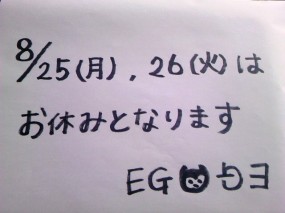 8/25(月), 26(火)は
お休みとなります
EGのGE